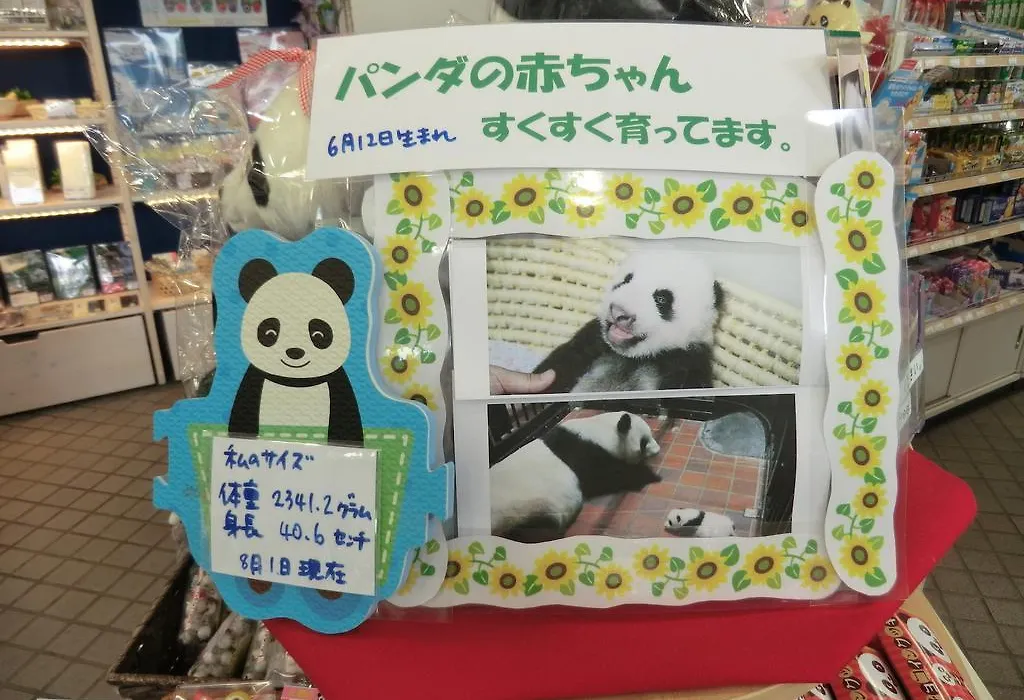 パンダの赤ちゃん
6月12日生まれ すくすく育ってます。
私のサイズ
体重 2341.2グラム
身長 40.6センチ
8月1日現在